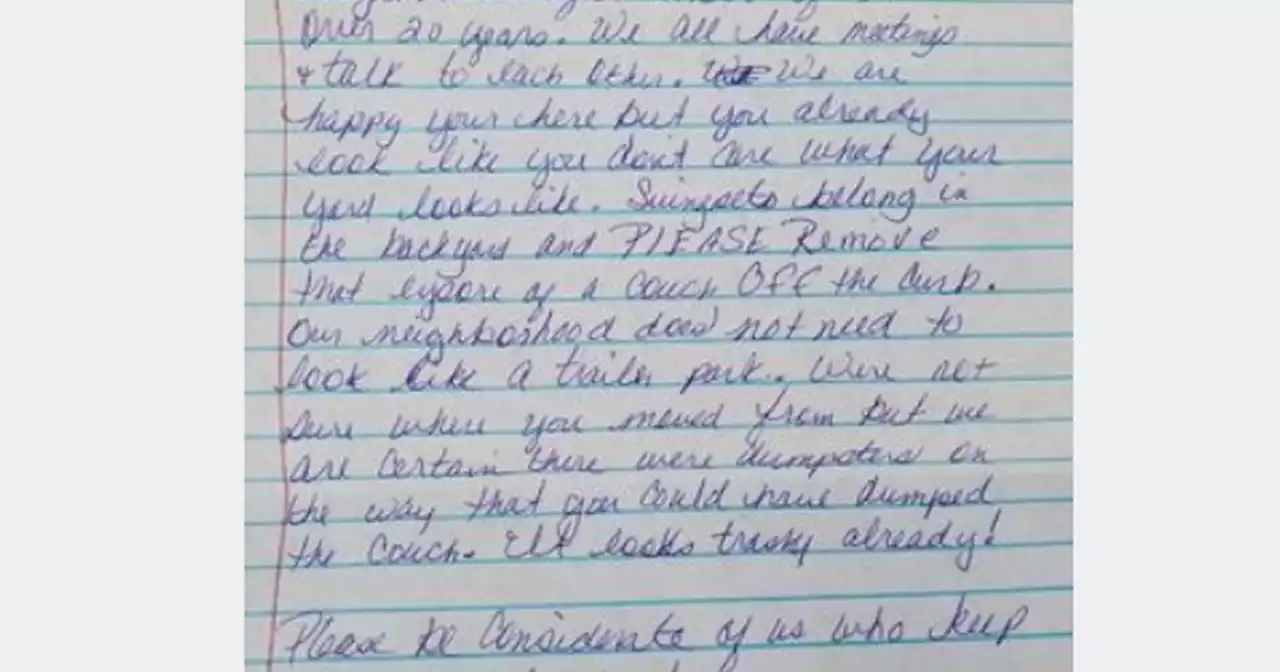 Over 20 years. We all have meetings
& talk to each other. We are
happy your here but you already
look like you don't care what your
yard looks like. Swingsets belong in
the backyard and PlEASE Remove
that eysore of a couch Off the Curb.
Our neighborhood does not need to
look like a trailer park. Were not
sure where you moved from but we
are Certain there were dumpsters on
the way that you Could have dumped
the Couch. It looks trashy already!
Please be Considerate of us who keep